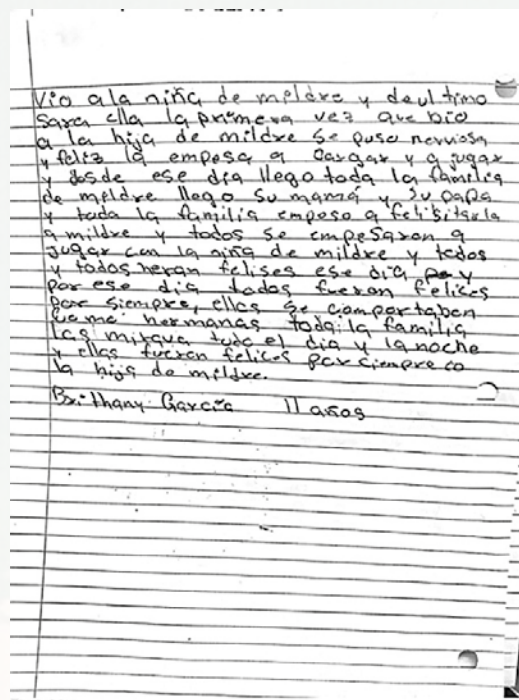 Vio ala niña de mildre y deultimo
Sara ella la primera vez que bio
a la hija de mildre se puso nerviosa
y feliz la empesa a cargar y a jugar
y desde ese dia llego toda la familia
de mildre llego su mamá y su papa
y toda la familia empeso a felisitarla
a mildre y todos se empesaron a
jugar con la niña de mildre y todos
y todos heran felises ese dia y
por ese dia todos fueron felices
por siempre, ellas se comportaben
como hermanas toda la familia
las mirava todo el dia y la noche
y ellas fueron felices por ciempre co
la hija de mildre.
Brithany Garcia 11 años